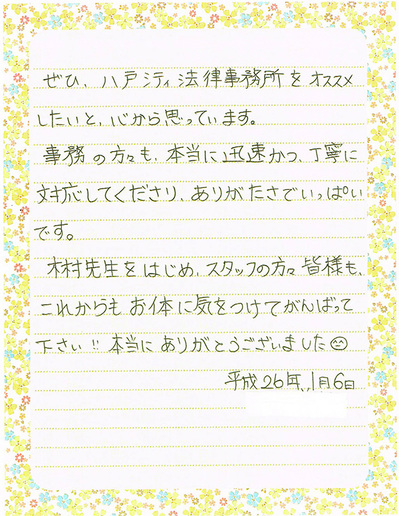 ぜひ、八戸シティ法律事務所をオススメ
したいと、心から思っています。
事務の方々も、本当に迅速かつ、丁寧に
対応してくださり、ありがたさでいっぱい
です。
木村先生をはじめ、スタッフの方々皆様も、
これからもお体に気をつけてがんばって
下さい!!本当にありがとうございました☺
平成26年、1月6日